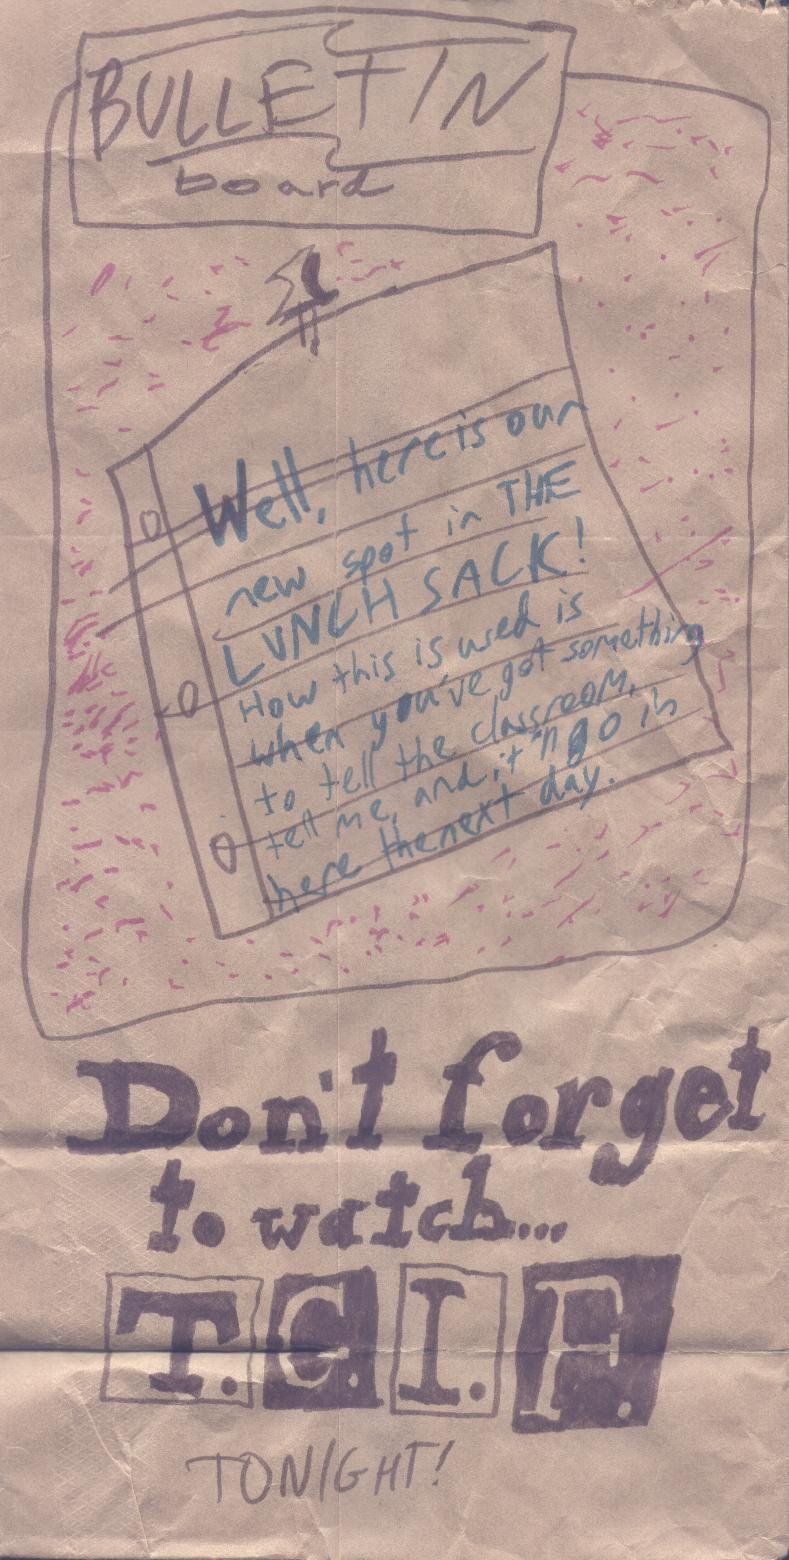 BULLETIN
board
Well, here is our
new spot in THE
LUNCH SACK!
How this is used is
when you've got something
to tell the classroom,
tell me, and it'll go in
here the next day.
Don't forget
to watch...
T.G.I.F.
TONIGHT!